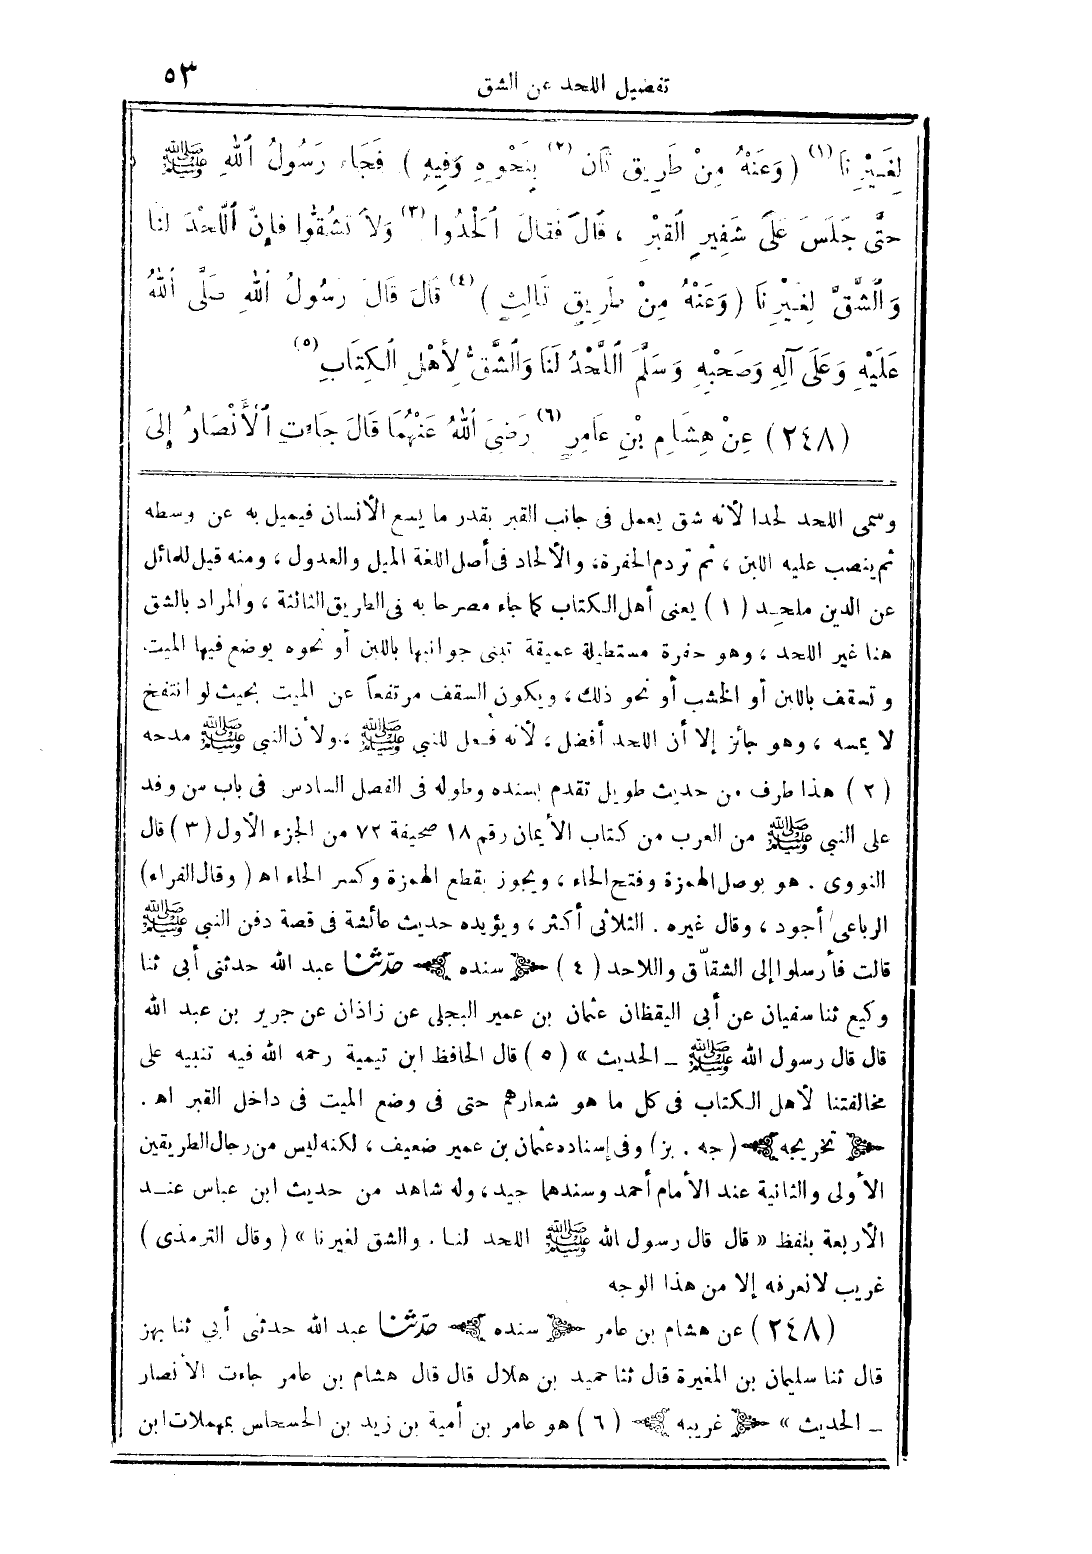 تفضيل اللحد عن الشق ٥٣
لِغَيْرِنَا (١) (وَعَنْهُ مِنْ طَرِيقٍ ثَانٍ (٢) بِنَحْوِهِ وَفِيهِ) فَجَاءَ رَسُولُ ٱللهِ ﷺ
حَتَّى جَلَسَ عَلَى شَفِيرِ ٱلْقَبْرِ ، قَالَ فَقَالَ ٱلْحَدُوا (٣) وَلاَ تَشُقُّوا فَإِنَّ ٱللَّحْدَ لَنَا
وَٱلشَّقَّ لِغَيْرِنَا (وَعَنْهُ مِنْ طَرِيقٍ ثَالِثٍ) (٤) قَالَ قَالَ رَسُولُ ٱللهِ صَلَّى ٱللهُ
عَلَيْهِ وَعَلَى آلِهِ وَصَحْبِهِ وَسَلَّمَ اللَّحْدُ لَنَا وَٱلشَّقُّ لِأَهْلِ ٱلْكِتَابِ (٥)
(٢٤٨) عَنْ هِشَامِ بْنِ عَامِرٍ (٦) رَضِيَ ٱللهُ عَنْهُمَا قَالَ جَاءَتِ ٱلْأَنْصَارُ إِلَى
وسمى اللحد لحدا لأنه شق يعمل فى جانب القبر بقدر ما يسع الأنسان فيميل به عن وسطه
ثم ينصب عليه اللبن ، ثم تردم الحفرة، والألحاد فى أصل اللغة الميل والعدول ، ومنه قيل للمائل
عن الدين ملحد (١) يعنى أهل الكتاب كما جاء مصرحا به فى الطريق الثالثة ، والمراد بالشق
هنا غير اللحد ، وهو حفرة مستطيلة عميقة تبنى جوانبها باللبن أو نحوه يوضع فيها الميت
وتسقف باللبن أو الخشب أو نحو ذلك ، ويكون السقف مرتفعاً عن الميت بحيث لو انتفخ
لا يمسه ، وهو جائز إلا أن اللحد أفضل ، لأنه فعل للنبي ﷺ ، ولأن النبي ﷺ مدحه
(٢) هذا طرف من حديث طويل تقدم بسنده وطوله فى الفصل السادس فى باب من وفد
على النبي ﷺ من العرب من كتاب الأيمان رقم ١٨ صحيفة ٧٢ من الجزء الأول (٣) قال
النووى . هو بوصل الهمزة وفتح الحاء ، ويجوز بقطع الهمزة وكسر الحاء اه (وقال الفراء)
الرباعى أجود ، وقال غيره . الثلاثى أكثر ، ويؤيده حديث عائشة فى قصة دفن النبي ﷺ
قالت فأرسلوا إلى الشقاّق واللاحد (٤) ﴿ سنده ﴾ حدّثنا عبد الله حدثنى أبى ثنا
وكيع ثنا سفيان عن أبى اليقظان عثمان بن عمير البجلى عن زاذان عن جرير بن عبد الله
قال قال رسول الله ﷺ ـ الحديث » (٥) قال الحافظ ابن تيمية رحمه الله فيه تنبيه على
مخالفتنا لأهل الكتاب فى كل ما هو شعارهم حتى فى وضع الميت فى داخل القبر اه .
﴿ تخريجه ﴾ (جه . بز) وفى إسناده عثمان بن عمير ضعيف ، لكنه ليس من رجال الطريقين
الأولى والثانية عند الأمام أحمد وسندهما جيد ، وله شاهد من حديث ابن عباس عند
الأربعة بلفظ « قال قال رسول الله ﷺ اللحد لنا . والشق لغيرنا » (وقال الترمذى)
غريب لا نعرفه إلا من هذا الوجه
(٢٤٨) عن هشام بن عامر ﴿ سنده ﴾ حدّثنا عبد الله حدثنى أبي ثنا بهز
قال ثنا سليمان بن المغيرة قال ثنا حميد بن هلال قال قال هشام بن عامر جاءت الأنصار
ـ الحديث » ﴿ غريبه ﴾ (٦) هو عامر بن أمية بن زيد بن الحسحاس بمهملات ابن